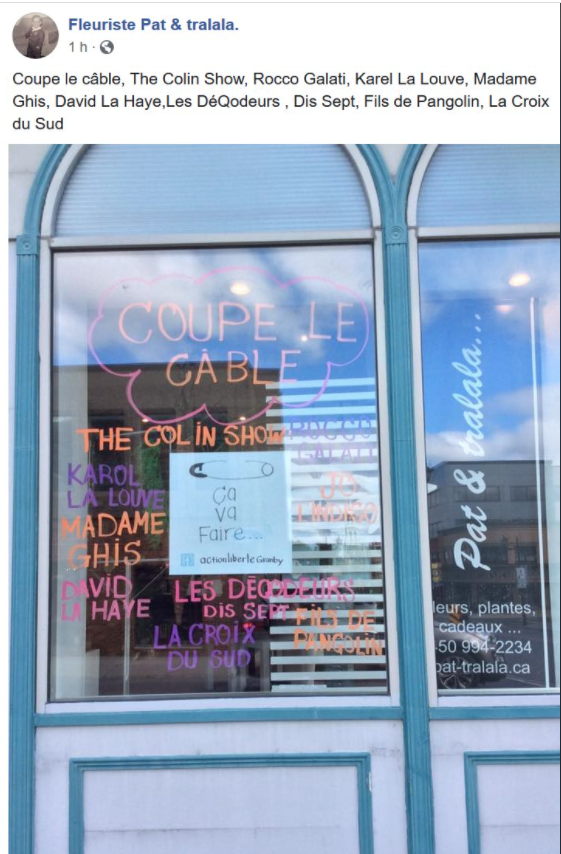 Fleuriste Pat & tralala.
1 h ·
Coupe le câble, The Colin Show, Rocco Galati, Karel La Louve, Madame
Ghis, David La Haye,Les DéQodeurs , Dis Sept, Fils de Pangolin, La Croix
du Sud
COUPE LE
CÂBLE
THE COLIN SHOW
ROCCO
GALATI
KAROL
LA LOUVE
JO
L'INDIGO
MADAME
GHIS
Ça
va
Faire...
actionliberte Granby
DAVID
LA HAYE
LES DÉQODEURS
DIS SEPT
FILS DE
PANGOLIN
LA CROIX
DU SUD
Pat & tralala...
leurs, plantes,
cadeaux ...
50 994-2234
pat-tralala.ca